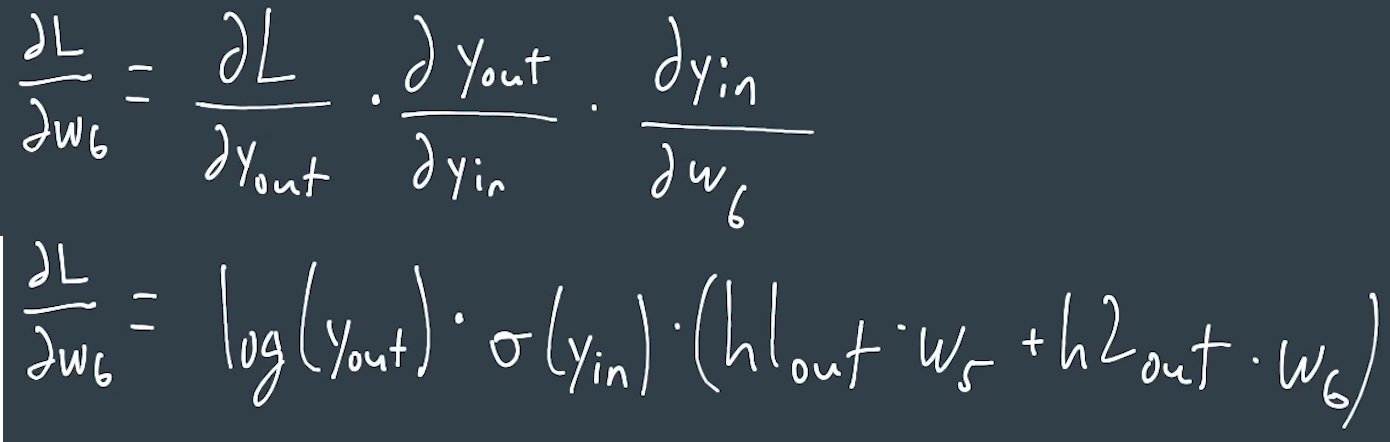 ∂L/∂w₆ = ∂L/∂y_out · ∂y_out/∂y_in · ∂y_in/∂w₆
∂L/∂w₆ = log(y_out) · σ(y_in) · (h1_out · w₅ + h2_out · w₆)